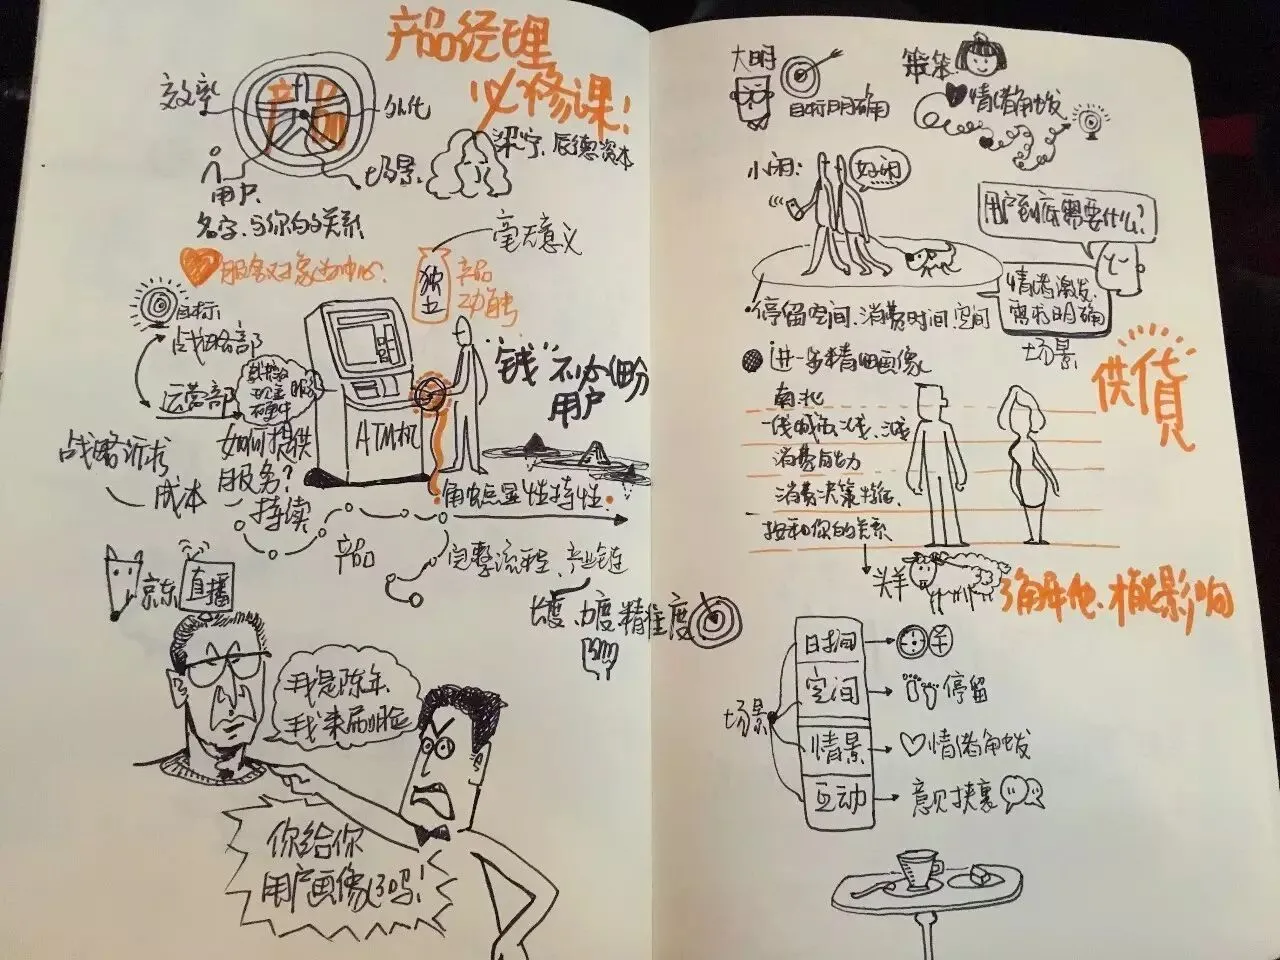 产品经理
必修课!
产品
效率
优化
用户
场景
梁宁、辰德资本
名字,与你的关系
服务对象为中心
毫无意义
独立
产品
功能
目标:
战略部
运营部
如何提供
服务?
持续
战略诉求
成本
ATM机
"钱"不必细分
用户
触点显性特性
产品
完整流程、产业链
长度、力度、精准度
京东
直播
我是陈年
我来刷脸
你给你
用户画像了吗!
大明
目标明确
笨笨
情绪触发
小闲:
好闲
用户到底需要什么?
情绪激发
需求明确
场景
停留空间、消费时间、空间
进一步精细画像
南北
一线城市、二线、三线
消费能力
消费决策特征
按和你的关系
头羊
了解他、才能影响
场景
时间
空间
停留
情景
情绪触发
互动
意见挟裹